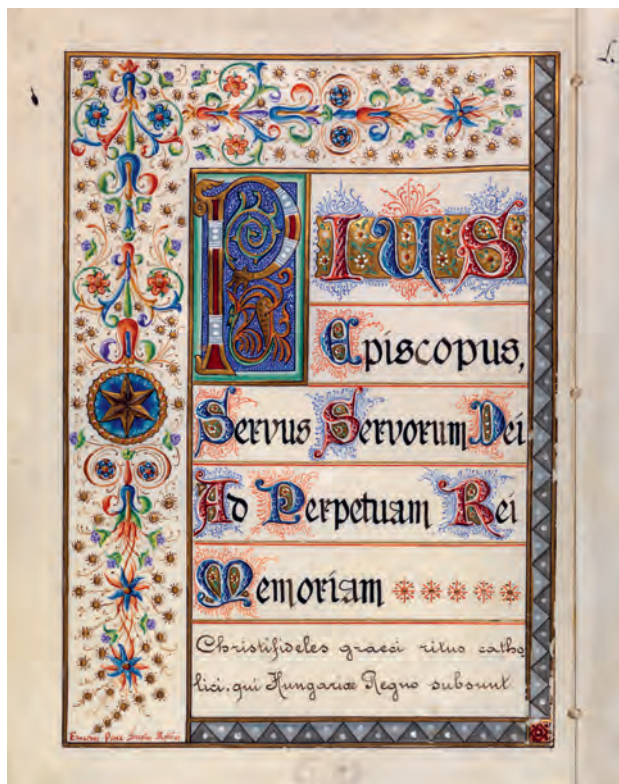 PIUS
Episcopus,
Servus Servorum Dei
Ad Perpetuam Rei
Memoriam
Christifideles graeci ritus catho
lici, qui Hungariæ Regno subsunt